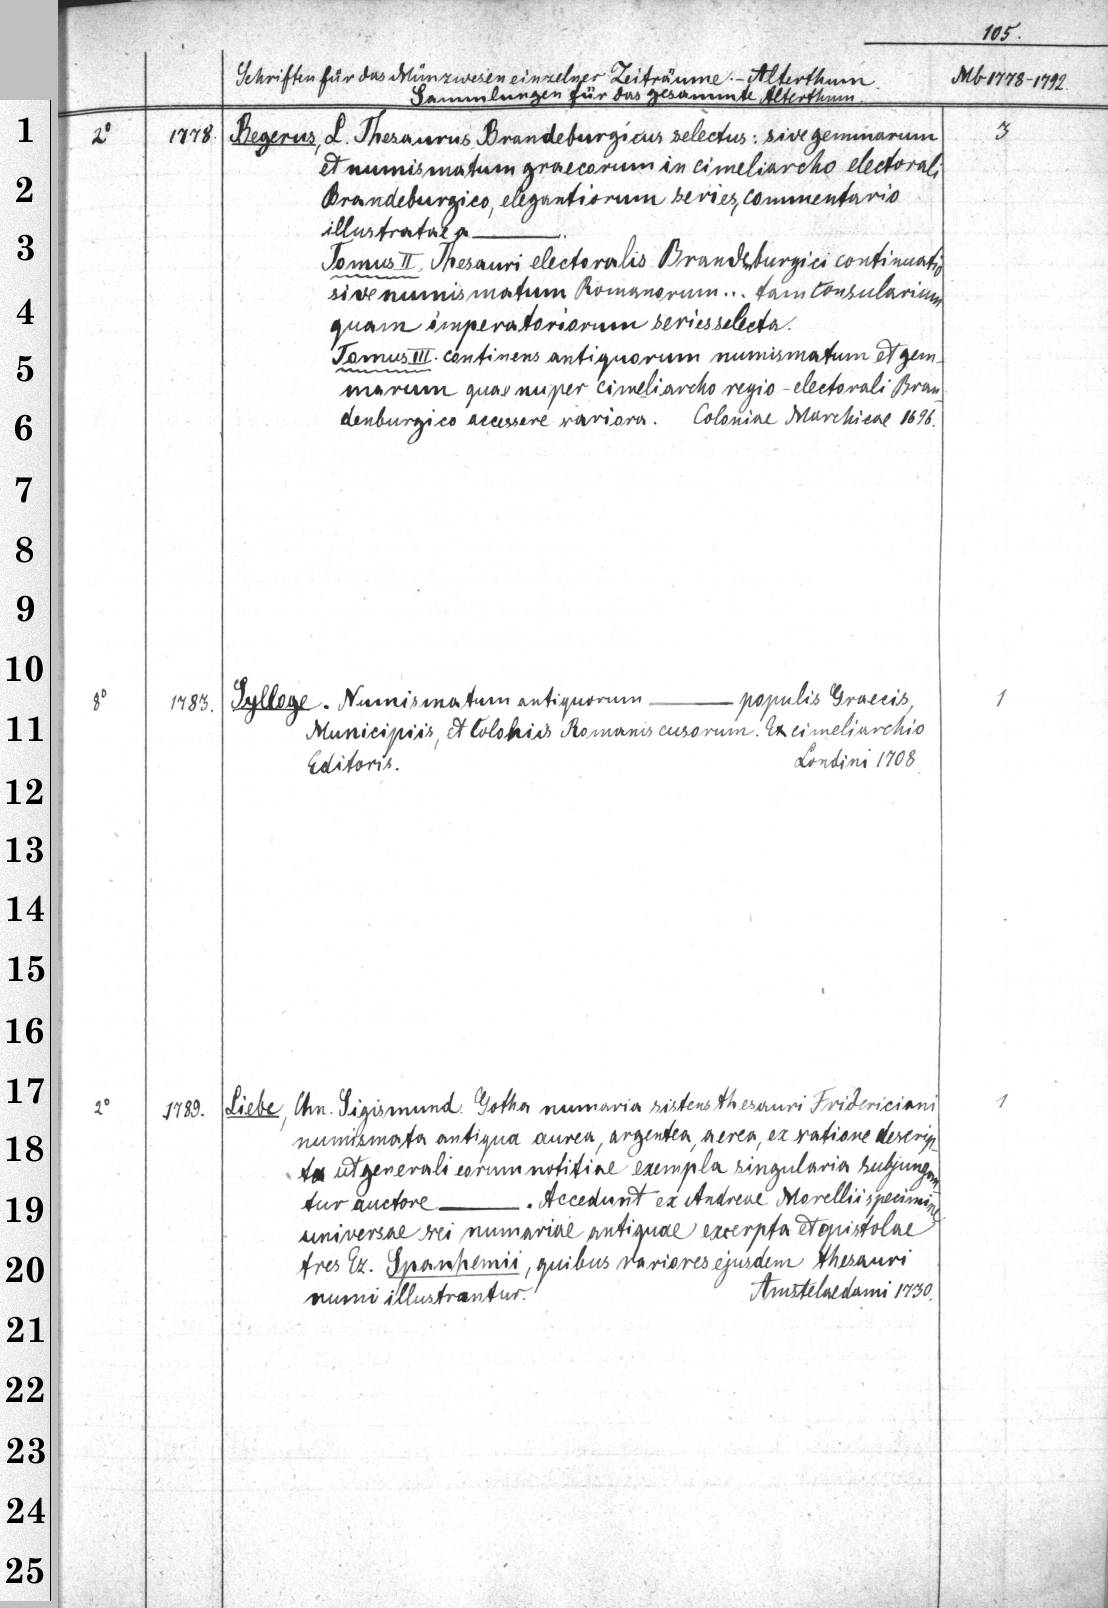 105.
Schriften für das Münzwesen einzelner Zeiträume. - Alterthum. Mb 1778-1792.
Sammlungen für das gesammte Alterthum.
1
2° 1778. Begerus, L. Thesaurus Brandeburgicus selectus: sive gemmarum 3
et numismatum graecorum in cimeliarcho electorali
2
Brandeburgico, elegantiorum series, commentario
illustratae a ______.
3
Tomus II, Thesauri electoralis Brandeburgici continuatio
sive numismatum Romanorum... tam consularium
4
quam imperatoriorum series selecta.
Tomus III. continens antiquorum numismatum et gem-
5
marum quae nuper cimeliarcho regio-electorali Bran-
6
denburgico accessere rariora. Coloniae Marchicae 1696.
7
8
9
10
8° 1783. Sylloge. Numismatum antiquorum ______ populis Graecis, 1
11
Municipiis, et Coloniis Romanis cusorum. Ex cimeliarchio
Editoris. Londini 1708
12
13
14
15
16
17
2° 1789. Liebe, Chn. Sigismund. Gotha numaria sistens thesauri Fridericiani 1
numismata antiqua aurea, argentea, aerea, ex ratione descrip-
18
ta et generali eorum notitiae exempla singularia subjungan-
tur auctore ______. Accedunt ex Andreae Morellii specimine
19
universae rei numariae antiquae excerpta et epistolae
20
tres Ez. Spanhemii, quibus rariores ejusdem thesauri
numi illustrantur. Amstelaedami 1730.
21
22
23
24
25